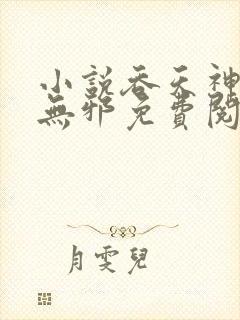 小說吞天神
無邪免費閱
月雯兒